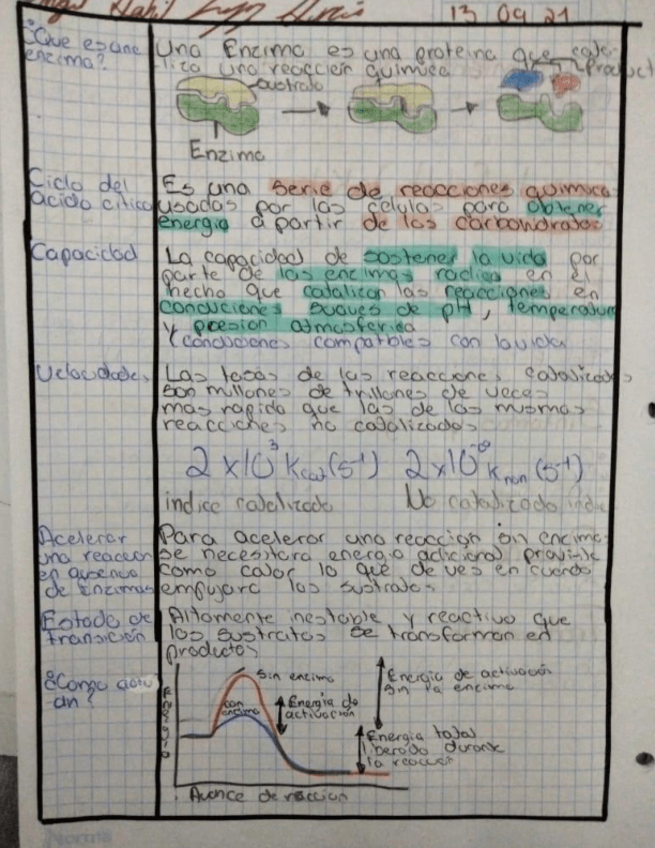 13 09 21
¿Que es una enzima?
Una Enzima es una proteina que cata-
liza una reacción quimica
product
sustrato
Enzima
Ciclo del
acido citico
Es una serie de reacciones quimica
usadas por las celulas para obtener
energia a partir de los carbohdratos
Capacidad
La capacidad de sostener la vida por
parte de las encimas radica en el
hecho que catalizar las reacciones en
condiciones suaves de pH, temperatura
y presion atmosferica
Y condiciones compatibles con la vida
Velocidades
Las tasas de las reacciones catalizadas
son millones de trillones de veces
mas rapido que las de las mismas
reacciones no catalizados
2 x 10³ Kcat (s⁻¹)
Knon (s⁻¹)
indice catalizado
No catalizado indi
Acelerar
una reaccion
en ausencia
de Enzimas
Para acelerar una reaccion sin encima
se necesitara energia adicional
como calor lo que de ves en cuando
empujara los sustratos
Estado de
transición
Altamente inestable y reactivo que
los sustratos se transforman en
productos
¿Como actu
an?
Sin encima
con
encima
Energia de
activación
Energia de activación
Sin la encima
Energia total
liberada durante
la reaccion
Avance de reaccion
Norma